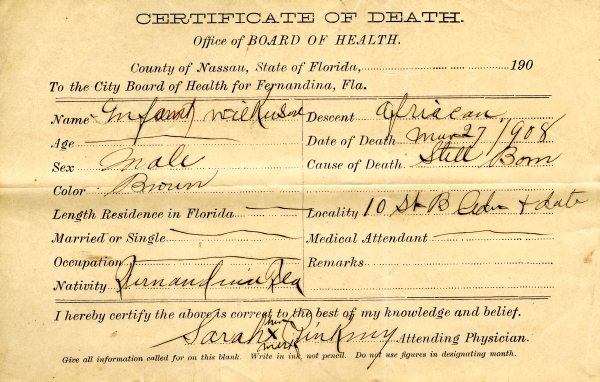 CERTIFICATE OF DEATH.
Office of BOARD OF HEALTH.
County of Nassau, State of Florida, 190
To the City Board of Health for Fernandina, Fla.
Name Infant Wilkinson
Descent African
Age
Date of Death Mar 27/1908
Sex Male
Cause of Death Still Born
Color Brown
Length Residence in Florida
Locality 10 St B & date
Married or Single
Medical Attendant
Occupation
Remarks
Nativity Fernandina Fla
I hereby certify the above is correct to the best of my knowledge and belief.
Sarah her x mark Attending Physician.
Give all information called for on this blank. Write in ink, not pencil. Do not use figures in designating month.